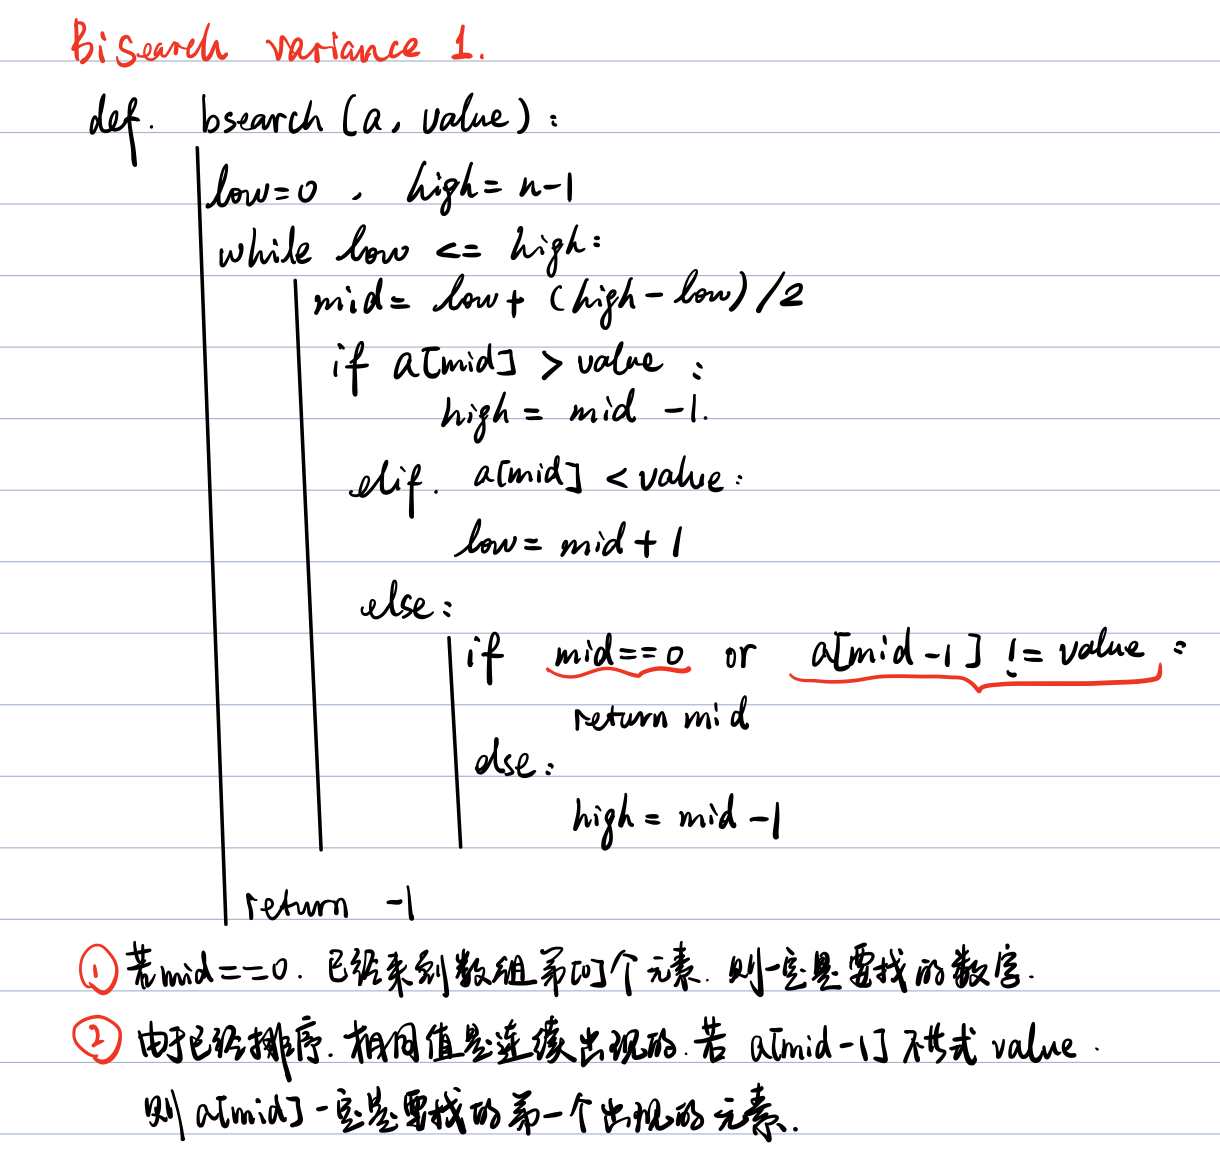 Bisearch variance 1.
def. bsearch (a, value):
low=0 , high = n-1
while low <= high:
mid= low + (high-low)/2
if a[mid] > value :
high = mid -1.
elif. a[mid] < value:
low= mid+1
else:
if mid==0 or a[mid-1] != value :
return mid
else:
high = mid -1
return -1
① 若mid==0. 已经来到数组第[0]个元素. 则一定是要找的数字.
② 由于已经排序. 相同值是连续出现的. 若 a[mid-1] 不 value .
则 a[mid]一定是要找的第一个出现的元素.